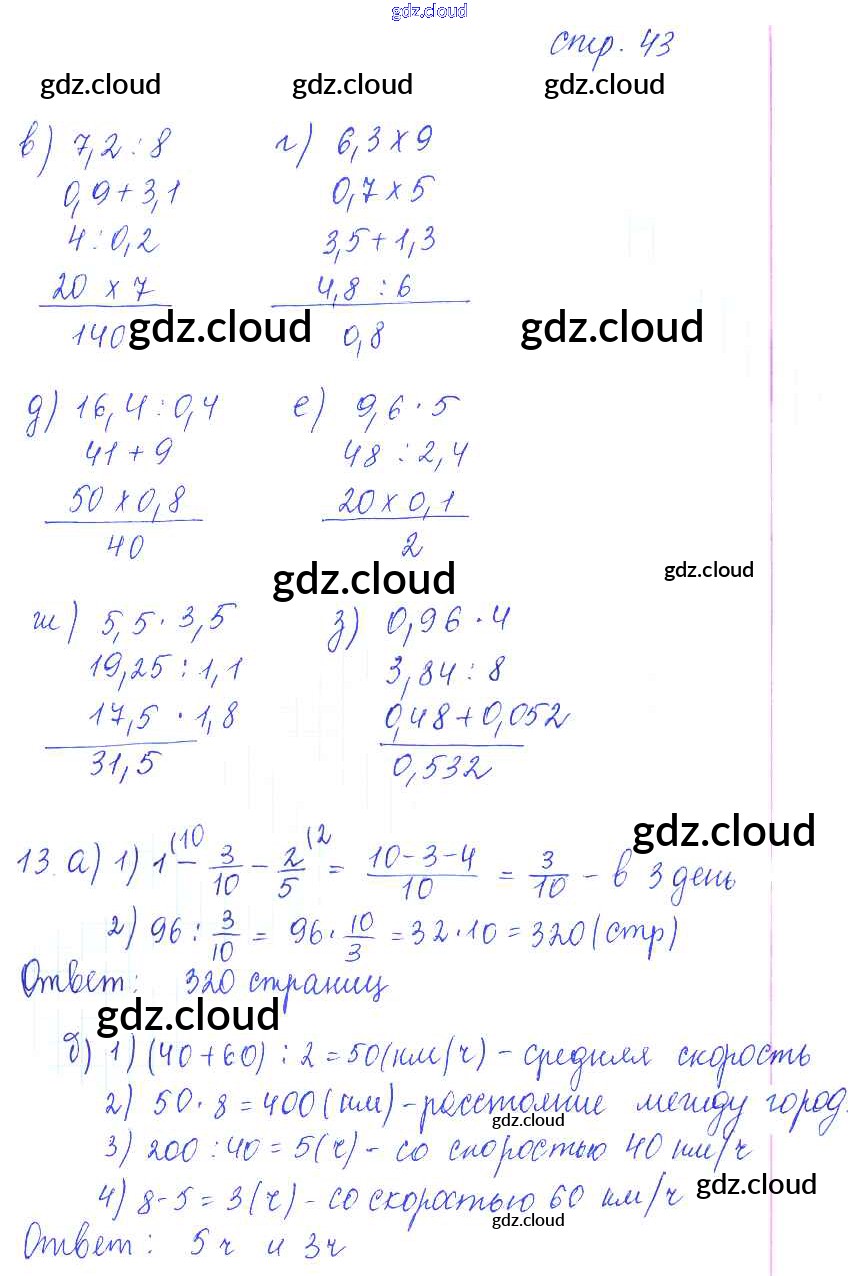 gdz.cloud
стр. 43
gdz.cloud gdz.cloud gdz.cloud
в) 7,2 : 8 г) 6,3 x 9
0,9 + 3,1 0,7 x 5
4 : 0,2 3,5 + 1,3
20 x 7 4,8 : 6
140 0,8
gdz.cloud gdz.cloud
д) 16,4 : 0,4 е) 9,6 · 5
41 + 9 48 : 2,4
50 x 0,8 20 x 0,1
40 2
gdz.cloud gdz.cloud
ж) 5,5 · 3,5 з) 0,96 · 4
19,25 : 1,1 3,84 : 8
17,5 · 1,8 0,48 + 0,052
31,5 0,532
gdz.cloud
13. а) 1) 1(10 − 3/10 − 2/5(2 = 10-3-4/10 = 3/10 - в 3 день
2) 96 : 3/10 = 96 · 10/3 = 32 · 10 = 320 (стр)
Ответ: 320 страниц
gdz.cloud
б) 1) (40 + 60) : 2 = 50 (км/ч) - средняя скорость
2) 50 · 8 = 400 (км) - расстояние между город.
gdz.cloud
3) 200 : 40 = 5 (ч) - со скоростью 40 км/ч
4) 8 - 5 = 3 (ч) - со скоростью 60 км/ч gdz.cloud
gdz.cloud
Ответ: 5 ч и 3 ч